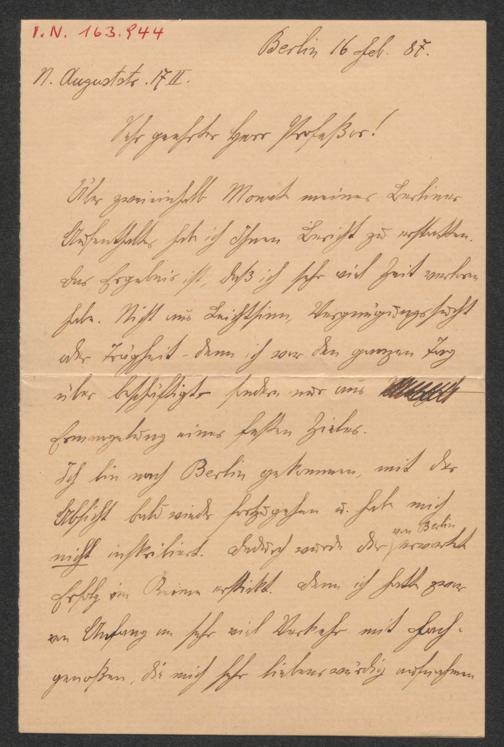 I.N. 163.944
Berlin 16 Feb. 87.
N. Auguststr. 17 II.
Sehr geehrter Herr Profeßor!
Über zweieinhalb Monat meines Berliner
Aufenthaltes habe ich Ihnen Bericht zu erstatten.
Das Ergebnis ist, daß ich sehr viel Zeit verloren
habe. Nicht aus Leichtsinn, Vergnügungssucht
oder Trägheit – denn ich war den ganzen Tag
über beschäftigt – sondern nur aus
Ermangelung eines festen Zieles.
Ich bin nach Berlin gekommen, mit der
Absicht bald wieder fortzugehen u. habe mich
nicht inskribiert. Dadurch wurde der von Berlin erwartete
Erfolg im Keime erstickt. Denn ich hatte zwar
von Anfang an sehr viel Verkehr mit Fach-
genoßen, die mich sehr liebenswürdig aufnahmen